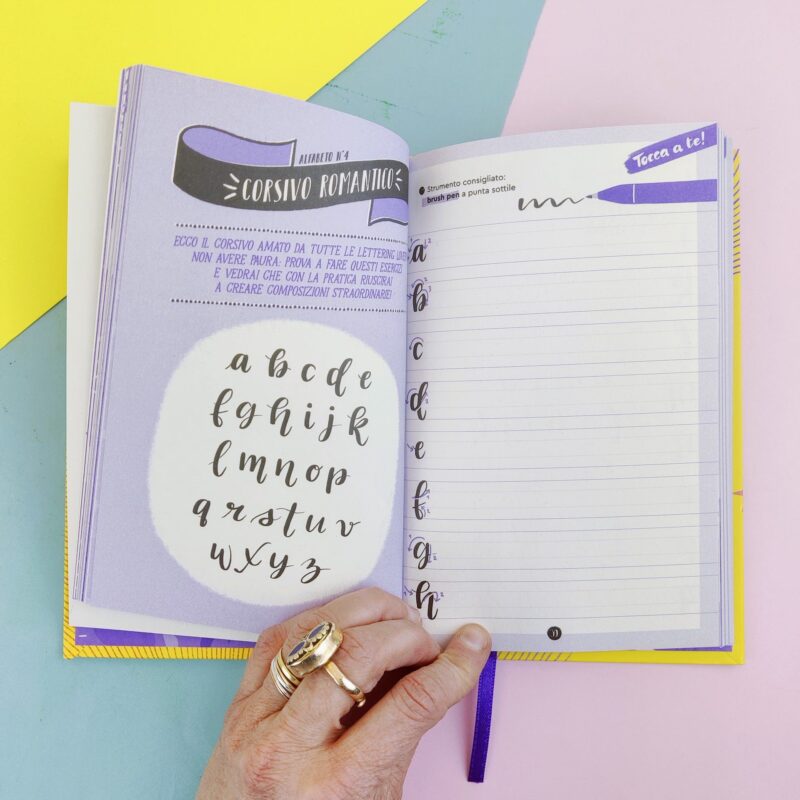 ALFABETO N°4
CORSIVO ROMANTICO
ECCO IL CORSIVO AMATO DA TUTTE LE LETTERING
NON AVERE PAURA: PROVA A FARE QUESTI ESERCIZI
E VEDRAI CHE CON LA PRATICA RIUSCIRAI
A CREARE COMPOSIZIONI STRAORDINARIE!
a b c d e
f g h i j k
l m n o p
q r s t u v
w x y z
Tocca a te!
Strumento consigliato:
brush pen a punta sottile
a
b
c
d
e
f
g
h